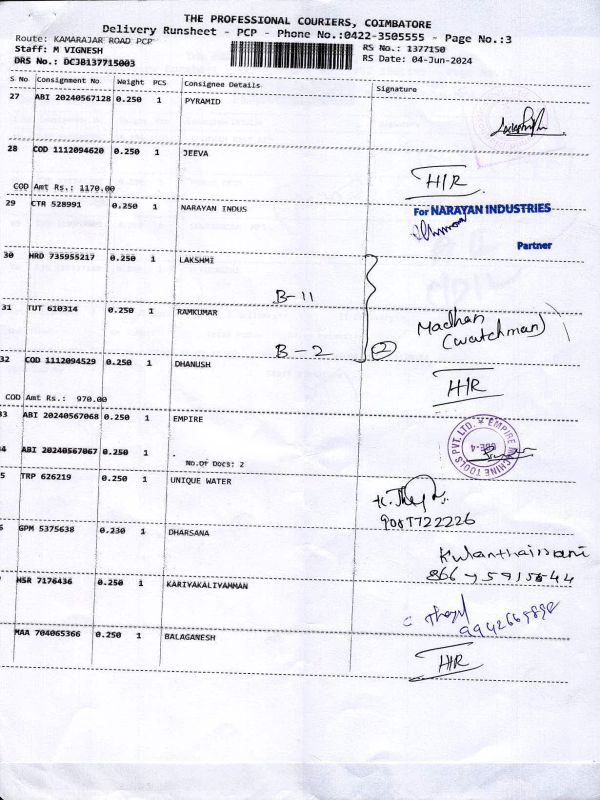 THE PROFESSIONAL COURIERS, COIMBATORE
Delivery Runsheet - PCP - Phone No.:0422-3505555 - Page No.:3
Route: KAMARAJAR ROAD PCP
RS No.: 1377150
Staff: M VIGNESH
RS Date: 04-Jun-2024
DRS No.: DCJB137715003
S No Consignment No Weight PCS Consignee Details Signature
27 ABI 20240567128 0.250 1 PYRAMID
28 COD 1112094620 0.250 1 JEEVA
H/R
COD Amt Rs.: 1170.00
29 CTR 528991 0.250 1 NARAYAN INDUS
For NARAYAN INDUSTRIES
Partner
30 HRD 735955217 0.250 1 LAKSHMI
B-11
31 TUT 610314 0.250 1 RAMKUMAR
Madhan
(watchman)
B-2
2
32 COD 1112094529 0.250 1 DHANUSH
H/R
COD Amt Rs.: 970.00
33 ABI 20240567068 0.250 1 EMPIRE
EMPIRE MACHINE TOOLS PVT.LTD.
4 ABI 20240567067 0.250 1
No.Of Docs: 2
5 TRP 626219 0.250 1 UNIQUE WATER
6 GPM 5375638 0.230 1 DHARSANA
7 HSR 7176436 0.250 1 KARIYAKALIYAMMAN
MAA 704065366 0.250 1 BALAGANESH
H/R